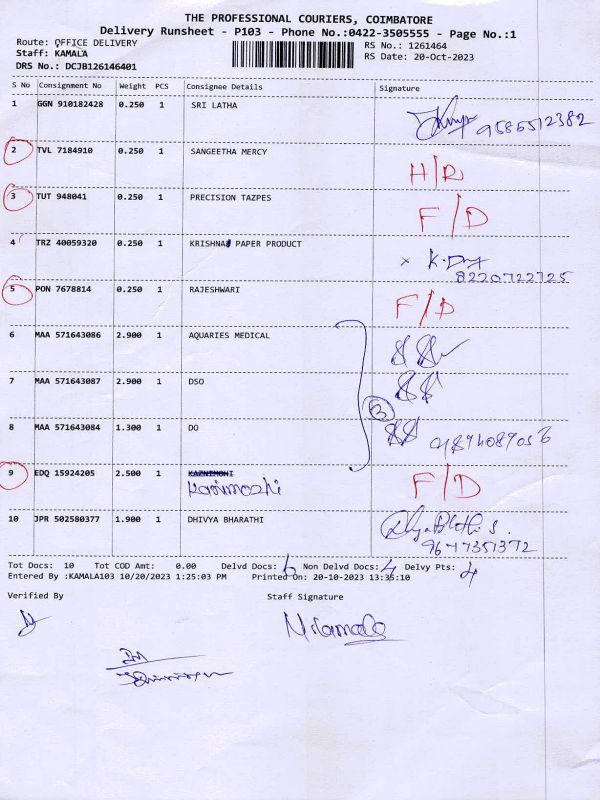 THE PROFESSIONAL COURIERS, COIMBATORE
Delivery Runsheet - P103 - Phone No.:0422-3505555 - Page No.:1
Route: OFFICE DELIVERY
Staff: KAMALA
DRS No.: DCJB126146401
RS No.: 1261464
RS Date: 20-Oct-2023
S No Consignment No Weight PCS Consignee Details Signature
1 GGN 910182428 0.250 1 SRI LATHA
9585512382
2 TVL 7184910 0.250 1 SANGEETHA MERCY
H/R
3 TUT 948041 0.250 1 PRECISION TAZPES
F/D
4 TRZ 40059320 0.250 1 KRISHNA PAPER PRODUCT
8220722725
5 PON 7678814 0.250 1 RAJESHWARI
F/D
6 MAA 571643086 2.900 1 AQUARIES MEDICAL
7 MAA 571643087 2.900 1 DSO
8 MAA 571643084 1.300 1 DO
9 EDQ 15924205 2.500 1 KAZNIMOHI
F/D
10 JPR 502580377 1.900 1 DHIVYA BHARATHI
9647351372
Tot Docs: 10 Tot COD Amt: 0.00 Delvd Docs: 6 Non Delvd Docs: 4 Delvy Pts: 4
Entered By :KAMALA103 10/20/2023 1:25:03 PM Printed On: 20-10-2023 13:35:10
Verified By Staff Signature